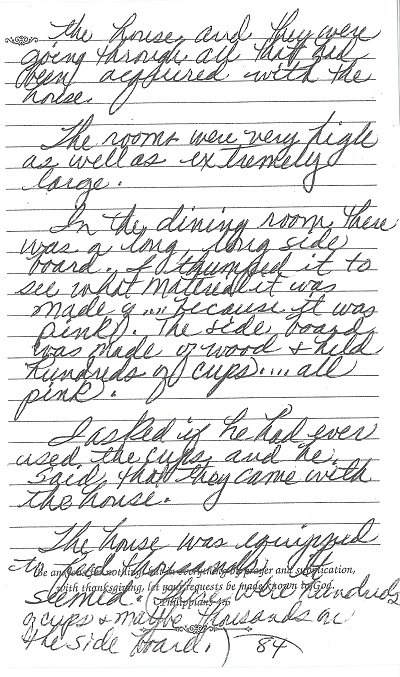 the house and they were
going through all that had
been acquired with the
house.
The rooms were very high
as well as extremely
large.
In the dining room, there
was a long, long side
board. I thumped it to
see what matried it was
made of .... because it was
pink. The side board
was made of wood & held
hundreds of cups.... all
pink.
I asked if he had ever
used the cups and he
said, that they came with
the house.
The house was equipped
to feed thousands it
Be anxious for nothing, but in everything by prayer and supplication,
with thanksgiving, let your requests be made known to God.
Philippians 4:6
seemed. (There were hundreds
of cups & maybe thousands on
the side board.)
84